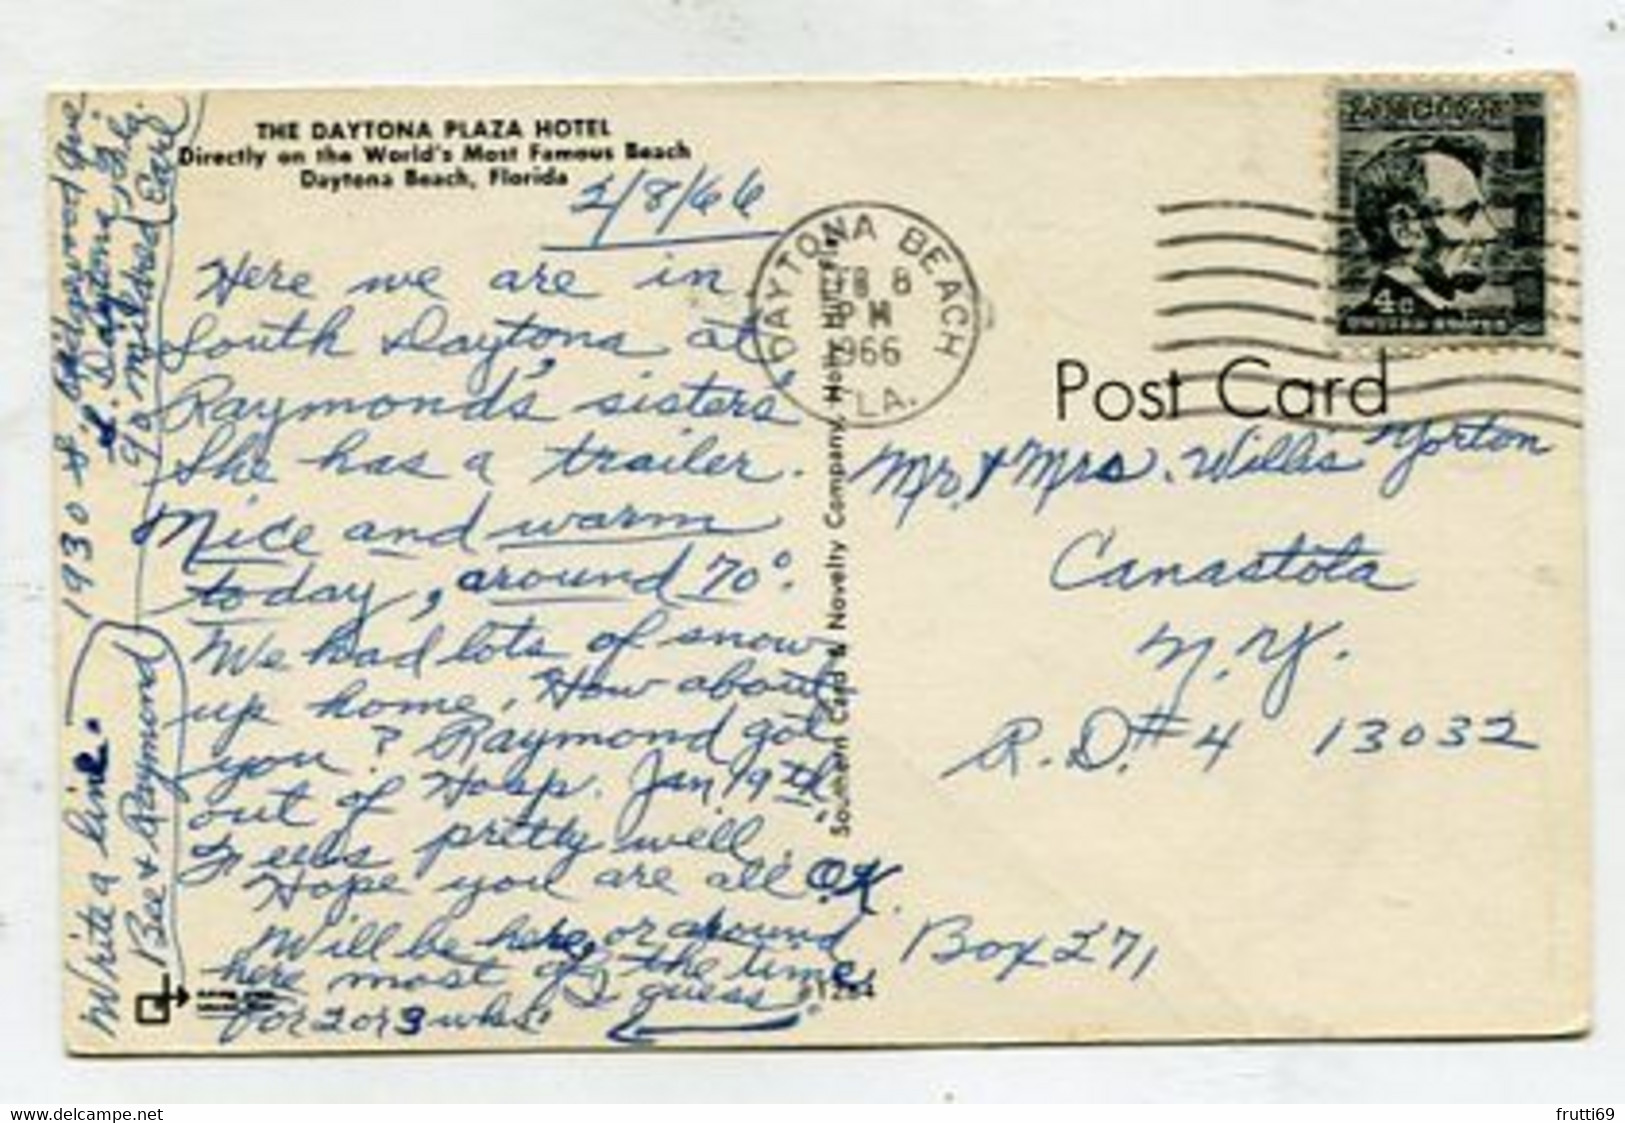 THE DAYTONA PLAZA HOTEL
Directly on the World's Most Famous Beach
Daytona Beach, Florida
2/8/66
Here we are in
South Daytona, at
Raymond's sisters
She has a trailer.
Nice and warm
today, around 70°.
We had lots of snow
up home. How about
you? Raymond got
out of Hosp. Jan 19th.
Feels pretty well.
Hope you are all O.K.
Will be here, or around
here most of the time
for 2 or 3 wks. I guess.
Write a line.
Bee & Raymond
1930 S. Ridgewood Ave
S. Daytona, Fla.
℅ Mildred Earl
DAYTONA BEACH
FEB 8
PM
1966
FLA.
4c
UNITED STATES
Post Card
Mr. & Mrs. Willis Yorton
Canastota
N.Y.
R.D. #4 13032
Box 271
Southern Card & Novelty Company, Holly Hill, Fla.
frutti69